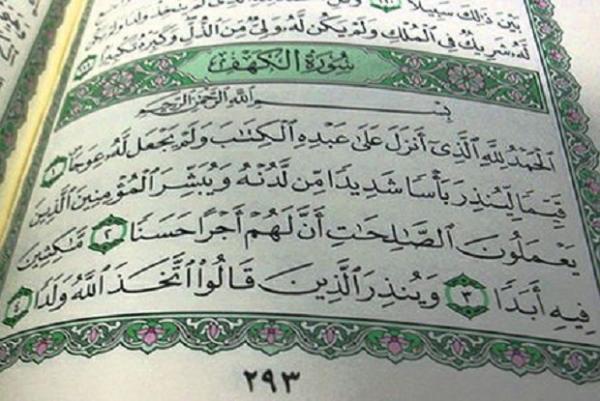 بَيْنَ ذَٰلِكَ سَبِيلًا ١١٠
لَّهُۥ شَرِيكٌ فِى ٱلْمُلْكِ وَلَمْ يَكُن لَّهُۥ وَلِىٌّ مِّنَ ٱلذُّلِّ وَكَبِّرْهُ تَكْبِيرًۢا ١١١
سُورَةُ ٱلْكَهْفِ
بِسْمِ ٱللَّهِ ٱلرَّحْمَٰنِ ٱلرَّحِيمِ
ٱلْحَمْدُ لِلَّهِ ٱلَّذِىٓ أَنزَلَ عَلَىٰ عَبْدِهِ ٱلْكِتَٰبَ وَلَمْ يَجْعَل لَّهُۥ عِوَجَاۜ ١
قَيِّمًا لِّيُنذِرَ بَأْسًا شَدِيدًا مِّن لَّدُنْهُ وَيُبَشِّرَ ٱلْمُؤْمِنِينَ ٱلَّذِينَ
يَعْمَلُونَ ٱلصَّٰلِحَٰتِ أَنَّ لَهُمْ أَجْرًا حَسَنًا ٢ مَّٰكِثِينَ
فِيهِ أَبَدًا ٣ وَيُنذِرَ ٱلَّذِينَ قَالُوا۟ ٱتَّخَذَ ٱللَّهُ وَلَدًا ٤
٢٩٣